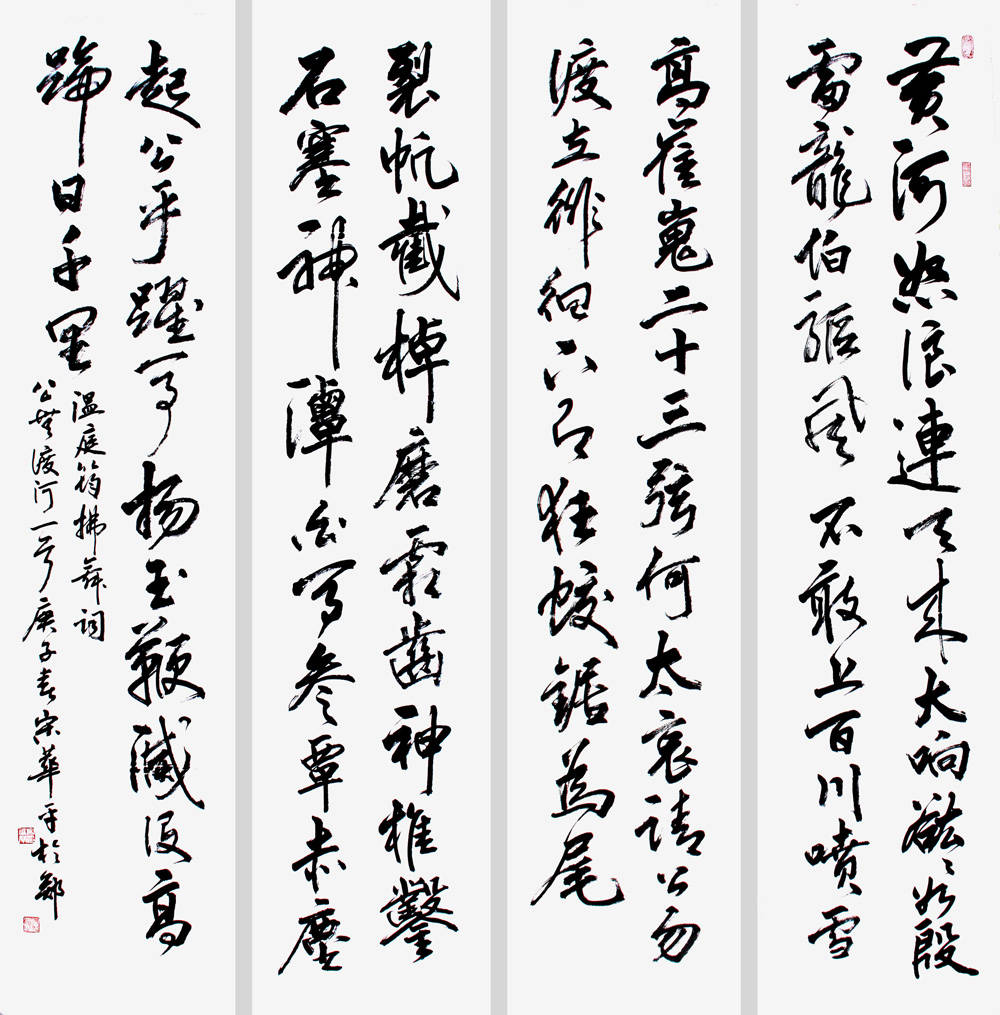 黄河怒浪連天來大响谹谹如殷
雷龍伯驅風不敢上百川噴雪
高崔嵬二十三弦何太哀請公勿
渡立徘徊下有狂蛟鋸為尾
裂帆截棹磨霜齒神椎鑿
石塞神潭白馬參覃赤塵
起公乎躍馬杨玉鞭滅没高
蹄日千里
温庭筠拂舞词
公無渡河一庚子春宋華平於鄭